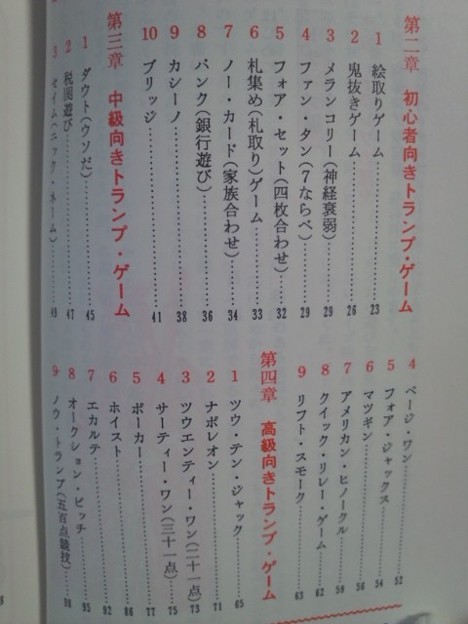 第二章 初心者向きトランプ・ゲーム
1 絵取りゲーム 23
2 鬼抜きゲーム 26
3 メランコリー(神経衰弱) 29
4 ファン・タン(7ならべ) 29
5 フォア・セット(四枚合わせ) 32
6 札集め(札取り)ゲーム 33
7 ノー・カード(家族合わせ) 34
8 バンク(銀行遊び) 36
9 カシーノ 38
10 ブリッジ 41
第三章 中級向きトランプ・ゲーム
1 ダウト(ウソだ) 45
2 税関遊び 47
3 セイム(ニック・ネーム) 49
4 ページ・ワン 52
5 フォア・ジャックス 54
6 マツギン 56
7 アメリカン・ピノークル 59
8 クイック・リレー・ゲーム 62
9 リフト・スモーク 63
第四章 高級向きトランプ・ゲーム
1 ツウ・テン・ジャック 65
2 ナポレオン 71
3 ツウエンティー・ワン(二十一点) 73
4 サーティー・ワン(三十一点) 75
5 ポーカー 77
6 ホイスト 86
7 エカルテ 92
8 オークション・ピッチ 95
9 ノウ・トランプ(五百点競技) 98